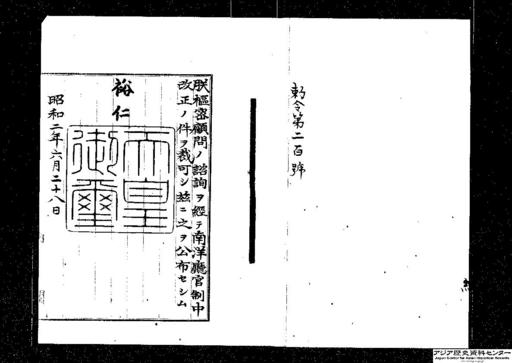 勅令第二百號
朕樞密顧問ノ諮詢ヲ經テ南洋廳官制中
改正ノ件ヲ裁可シ茲ニ之ヲ公布セシム
裕仁
天皇
御璽
昭和二年六月二十八日
アジア歴史資料センター
Japan Center for Asian Historical Records